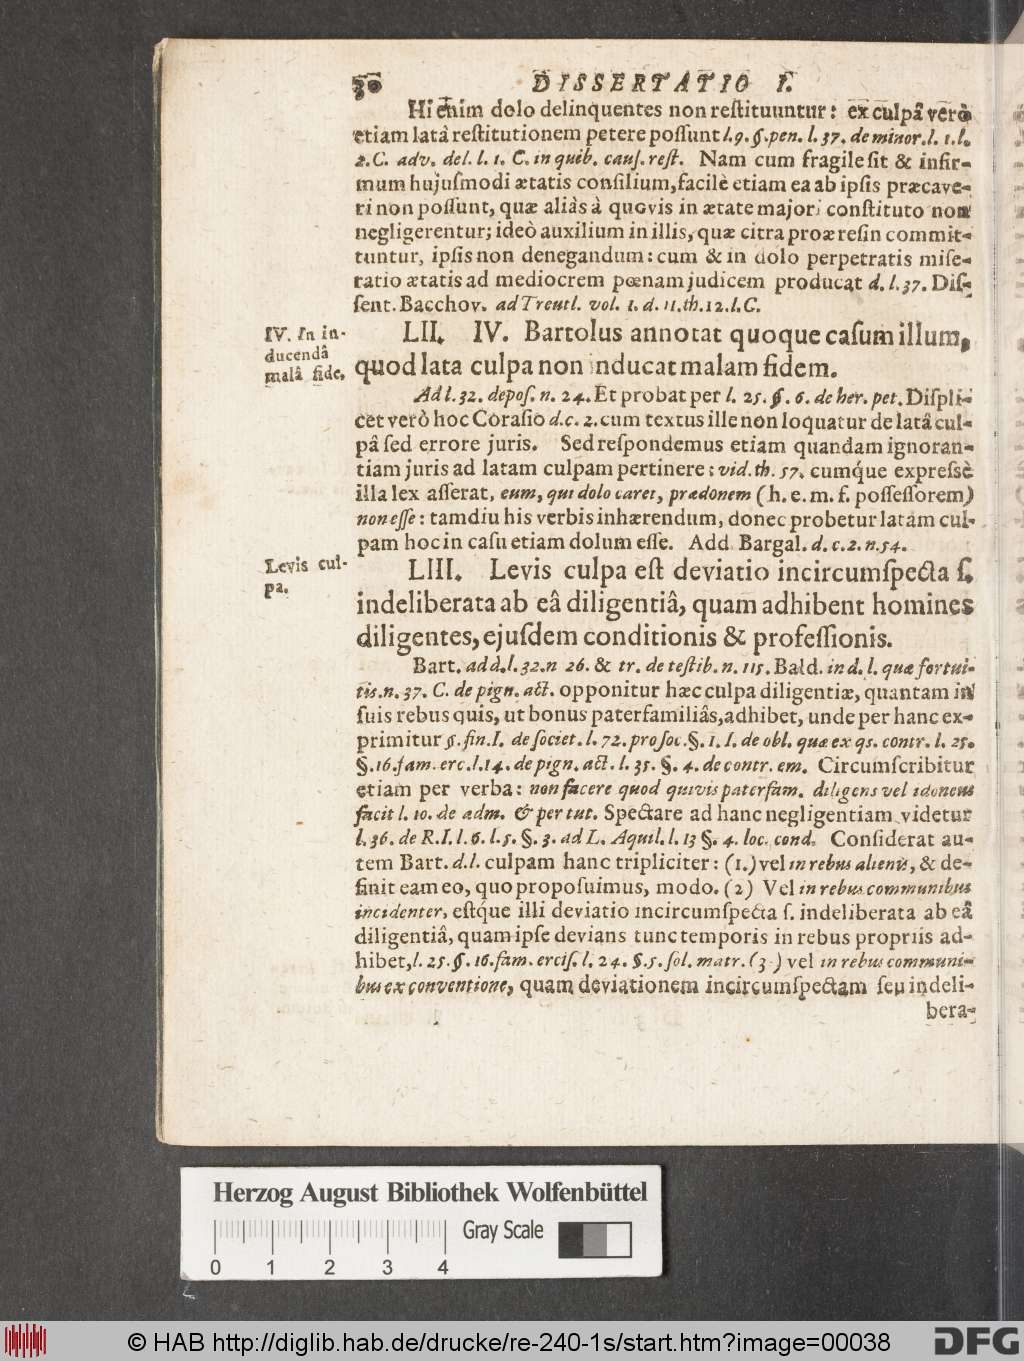 30 DISSERTATIO I.
Hi enim dolo delinquentes non reſtituuntur: ex culpâ verò
etiam latâ reſtitutionem petere poſſunt l. 9. §. pen. l. 37. de minor. l. 1. l.
2. C. adv. del. l. 1. C. in quib. cauſ. reſt. Nam cum fragile ſit & infir-
mum hujuſmodi ætatis conſilium, facilè etiam ea ab ipſis præcave-
ri non poſſunt, quæ aliàs à quovis in ætate majori conſtituto non
negligerentur; ideò auxilium in illis, quæ citra proæreſin commit-
tuntur, ipſis non denegandum: cum & in dolo perpetratis miſe-
ratio ætatis ad mediocrem pœnam judicem producat d. l. 37. Diſ-
ſent. Bacchov. ad Treutl. vol. 1. d. 11. th. 12. l. C.
IV. In in-
ducendâ
malâ fide.
LII. IV. Bartolus annotat quoque caſum illum,
quod lata culpa non inducat malam fidem.
Ad l. 32. depoſ. n. 24. Et probat per l. 25. §. 6. de her. pet. Diſpli-
cet verò hoc Coraſio d. c. 2. cum textus ille non loquatur de latâ cul-
pâ ſed errore juris. Sed reſpondemus etiam quandam ignoran-
tiam juris ad latam culpam pertinere: vid. th. 57. cumq́ue expreſsè
illa lex aſſerat, eum, qui dolo caret, prædonem (h. e. m. f. poſſeſſorem)
non eſſe: tamdiu his verbis inhærendum, donec probetur latam cul-
pam hoc in caſu etiam dolum eſſe. Add. Bargal. d. c. 2. n. 54.
Levis cul-
pa.
LIII. Levis culpa eſt deviatio incircumſpecta ſ.
indeliberata ab eâ diligentiâ, quam adhibent homines
diligentes, ejuſdem conditionis & profeſſionis.
Bart. ad d. l. 32. n 26. & tr. de teſtib. n. 115. Bald. in d. l. quæ fortui-
tis. n. 37. C. de pign. act. opponitur hæc culpa diligentiæ, quantam in
ſuis rebus quis, ut bonus paterfamiliâs, adhibet, unde per hanc ex-
primitur §. fin. I. de ſociet. l. 72. pro ſoc. §. 1. I. de obl. quæ ex qs. contr. l. 25.
§. 16. fam. erc. l. 14. de pign. act. l. 35. §. 4. de contr. em. Circumſcribitur
etiam per verba: non facere quod quivis paterfam. diligens vel idoneus
facit l. 10. de adm. & per tut. Spectare ad hanc negligentiam videtur
l. 36. de R. I. l. 6. l. 5. §. 3. ad L. Aquil. l. 13 §. 4. loc. cond. Conſiderat au-
tem Bart. d. l. culpam hanc tripliciter: (1.) vel in rebus alienis, & de-
finit eam eo, quo propoſuimus, modo. (2) Vel in rebus communibus
incidenter, eſtq́ue illi deviatio incircumſpecta ſ. indeliberata ab eâ
diligentiâ, quam ipſe devians tunc temporis in rebus propriis ad-
hibet, l. 25. §. 16. fam. erciſ. l. 24. §. 5. ſol. matr. (3.) vel in rebus communi-
bus ex conventione, quam deviationem incircumſpectam ſeu indeli-
bera-
Herzog August Bibliothek Wolfenbüttel
Gray Scale
0 1 2 3 4
© HAB http://diglib.hab.de/drucke/re-240-1s/start.htm?image=00038
DFG